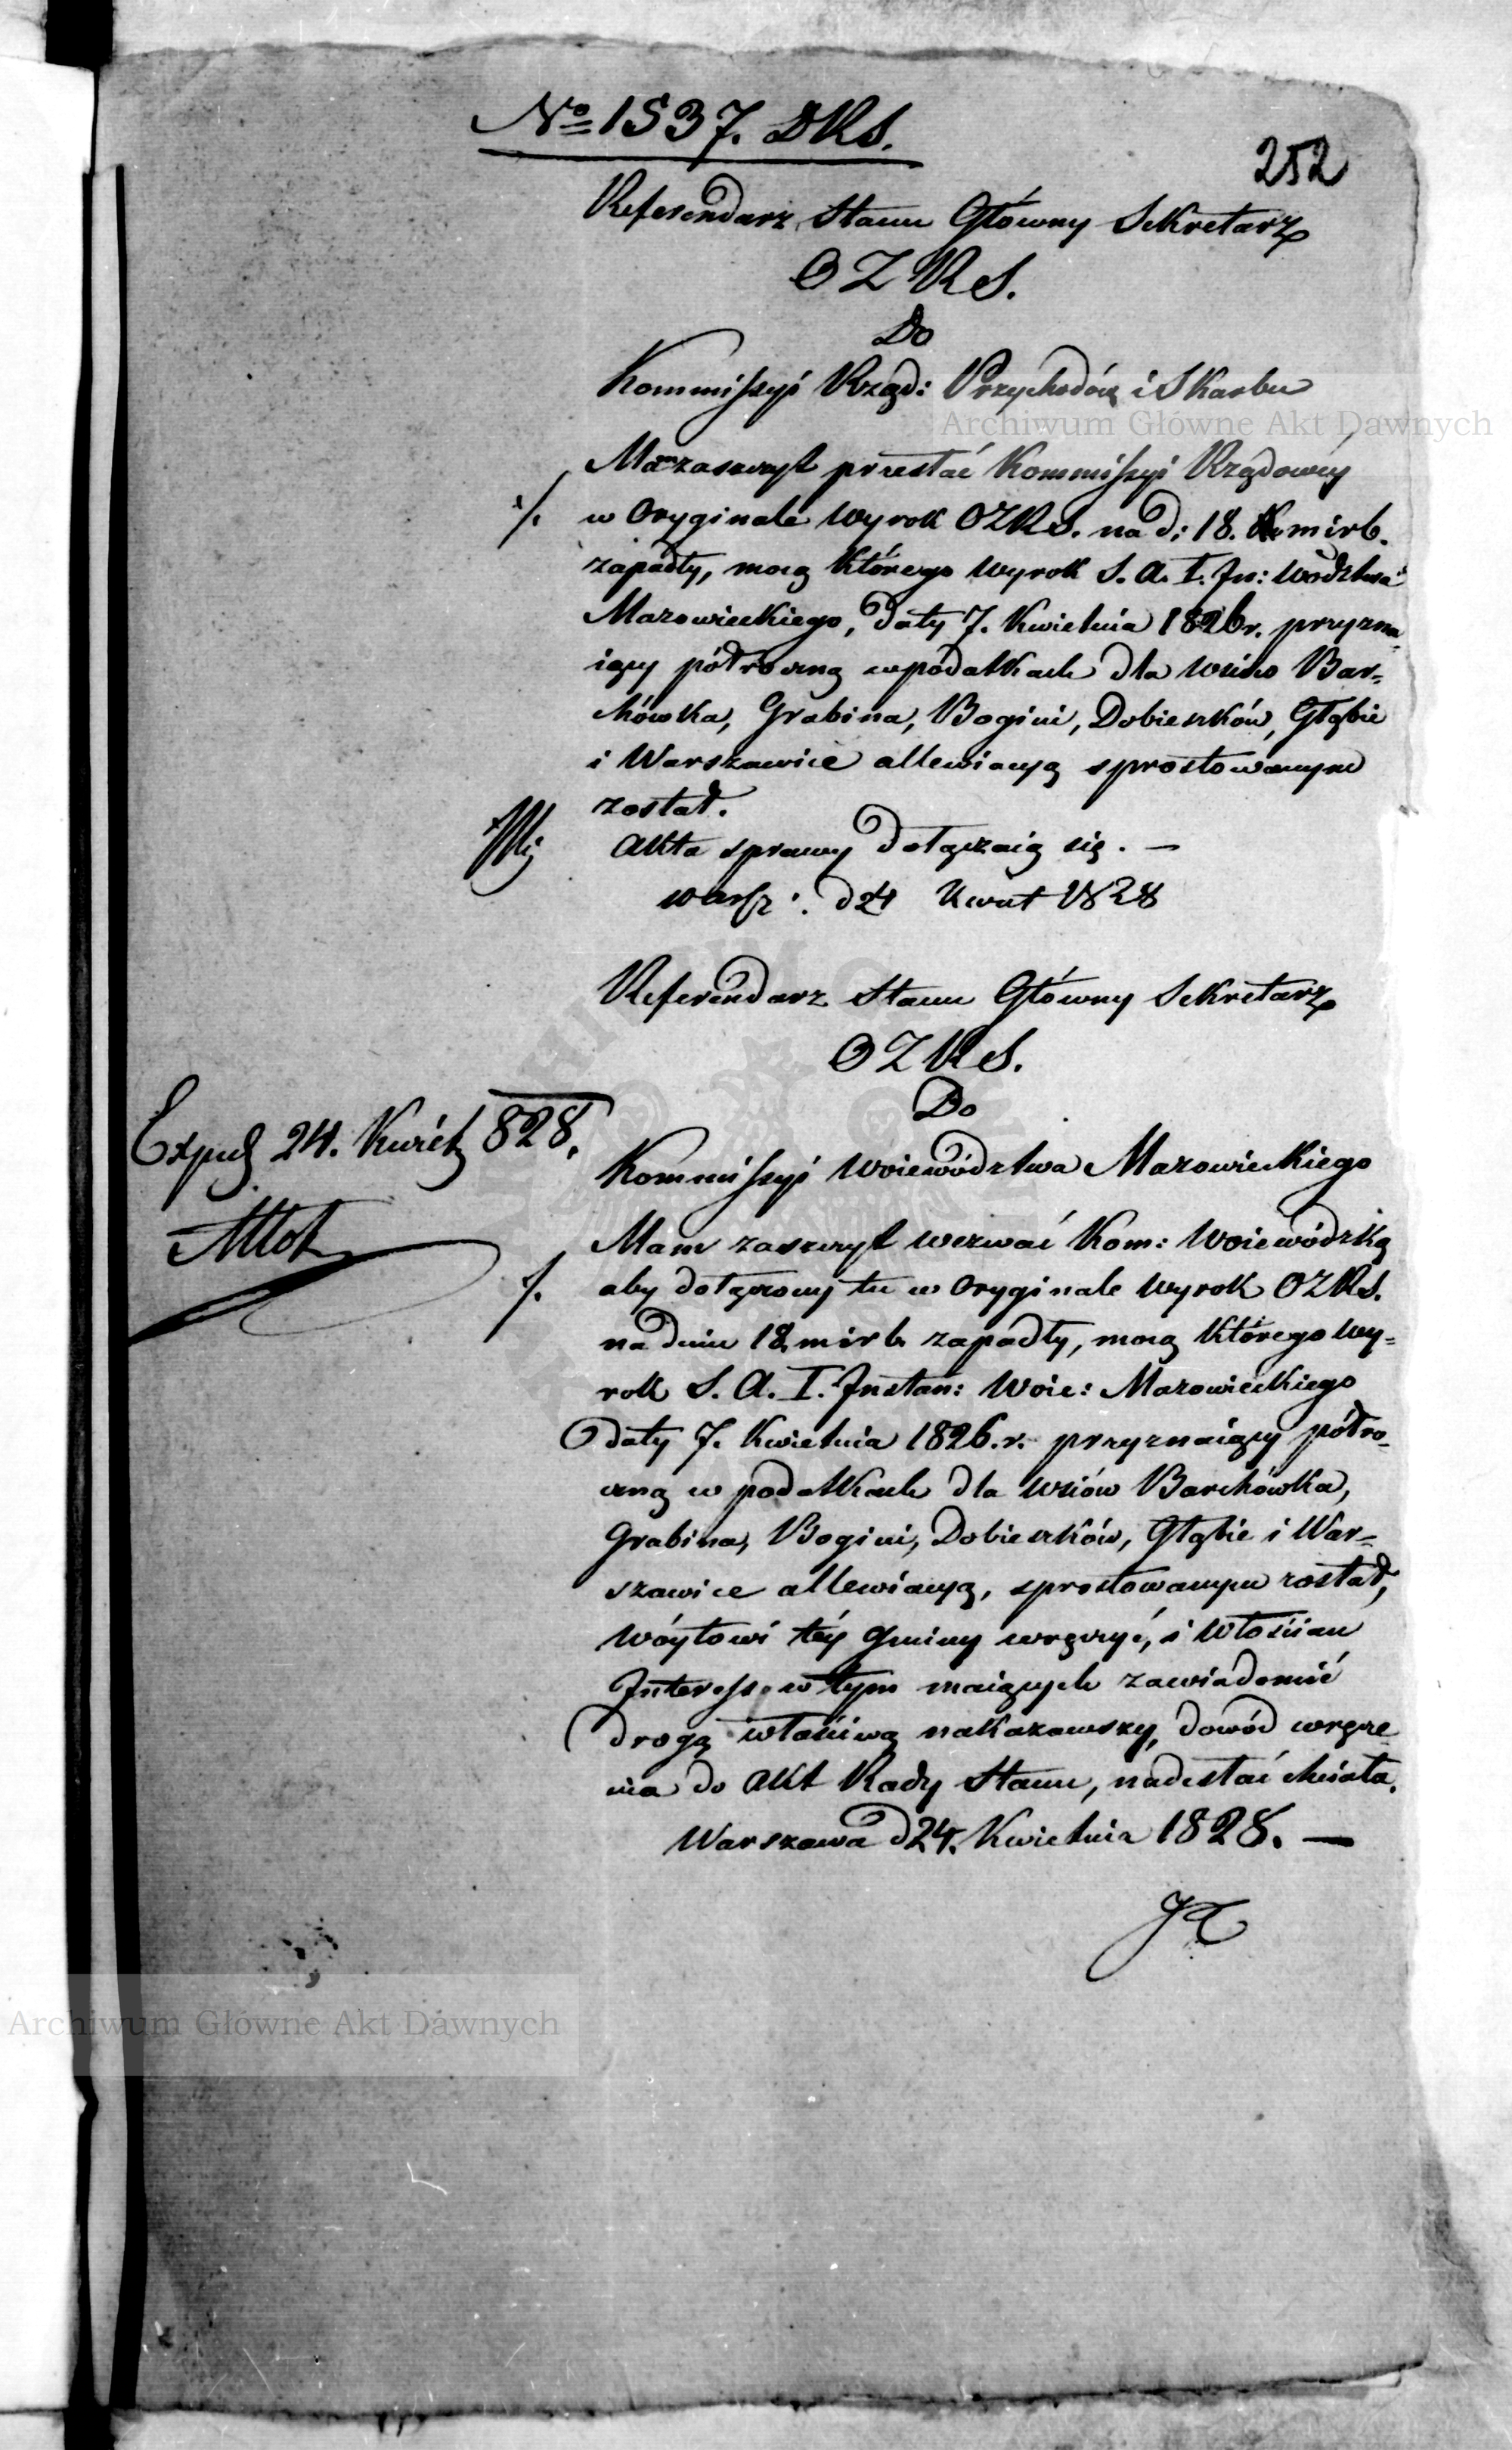 No 1537. DRS.
252
Referendarz Stanu Główny Sekretarz
OZRS.
Do
Kommissyi Rząd: Przychodów i Skarbu
Archiwum Główne Akt Dawnych
Mam zaszczyt przesłać Kommissyi Rządowéy
./. w Oryginale Wyrok OZRS. na d: 18. m i r b.
zapadły, mocą którego wyrok S. A. I. In: Wodztwa
Mazowieckiego, daty 7. Kwietnia 1826 r. przyzna
iący półroczną w podatkach dla wsiów Bar=
chówka, Grabina, Bogini, Dobieszków, Głąbie
i Warszawice allewiacyą sprostowanym
został.
Akta sprawy dołączaią się. —
Warsz: d 24 Kwiet 1828
Referendarz Stanu Główny Sekretarz
OZRS.
Do
Exped 24. Kwiet 828.
Kommissyi Woiewództwa Mazowieckiego
Mam zaszczyt wezwać Kom: Woiewódzką
./. aby dołączony tu w Oryginale Wyrok OZRS.
na dniu 18 m i r b. zapadły, mocą którego Wy=
rok S. A. I. Instan: Woie: Mazowieckiego
daty 7. Kwietnia 1826. r. przyznaiący półro=
czną w podatkach dla wsiów Barchówka,
Grabina, Bogini, Dobieszków, Głąbie i War=
szawice allewiacyą, sprostowanym został,
Wóytowi téy Gminy wręczyć, i Włościan
Interess w tym maiących zawiadomić
drogą właściwą nakazawszy, dowód wręcze
nia do Akt Rady Stanu, nadesłać chciała.
Warszawa d 24. Kwietnia 1828. —
Archiwum Główne Akt Dawnych